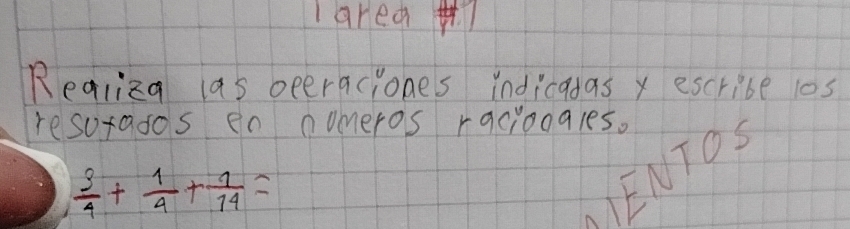 Tarea #1
Realiza las operaciones indicadas y escribe los
resultados en numeros racionales.
3/4 + 1/4 + 1/14 =